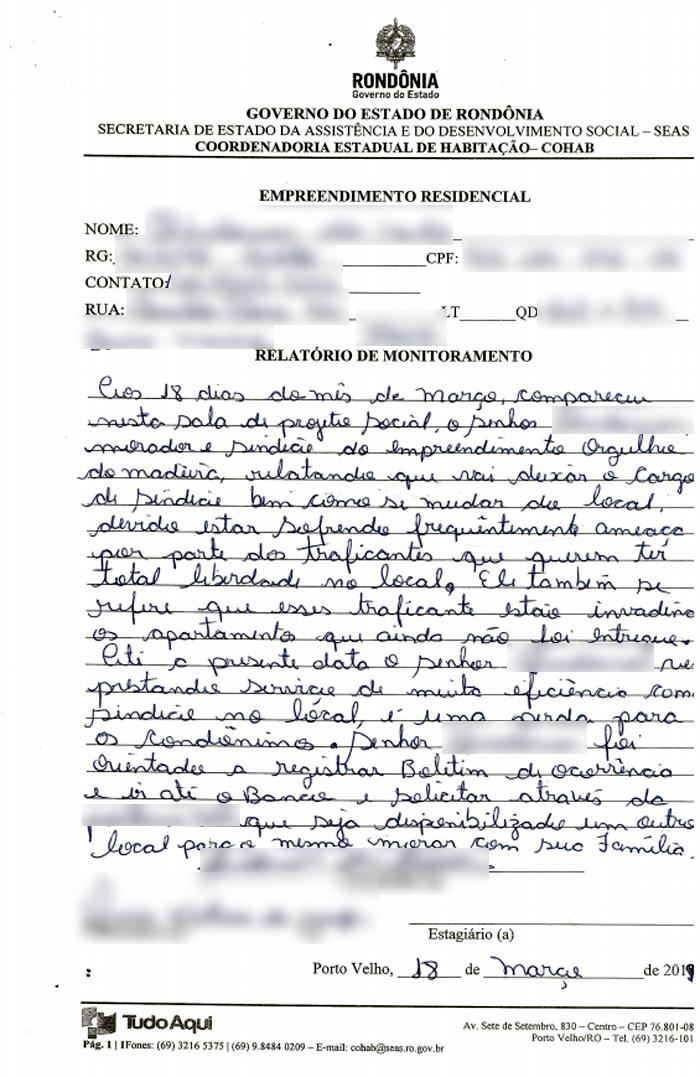 RONDÔNIA
Governo do Estado
GOVERNO DO ESTADO DE RONDÔNIA
SECRETARIA DE ESTADO DA ASSISTÊNCIA E DO DESENVOLVIMENTO SOCIAL – SEAS
COORDENADORIA ESTADUAL DE HABITAÇÃO– COHAB
EMPREENDIMENTO RESIDENCIAL
NOME:
RG: CPF:
CONTATO:
RUA: LT QD
RELATÓRIO DE MONITORAMENTO
Aos 18 dias do mês de março, compareceu
nesta sala de projeto social, o senhor
morador e sindico do empreendimento Orgulho
do madeira, relatando que vai deixar o cargo
de sindico bem como se mudar do local,
devido estar sofrendo frequentimente ameaça
por parte dos traficantes que querem ter
total liberdade no local, Ele também se
refere que esses traficante estão invadino
os apartamento que ainda não foi entregue.
Até a presente data o senhor
prestando serviço de muita eficiência com
sindico no local, é uma perda para
os condônimos. Senhor foi
orientado a registrar Boletim de Ocorrência
e ir até o Banco e solicitar através do
que seja disponibilizado um outro
local para o mesmo morar com sua Família.
Estagiário (a)
Porto Velho, 18 de março de 2019
Tudo Aqui
Av. Sete de Setembro, 830 – Centro – CEP 76.801-08
Porto Velho/RO – Tel. (69) 3216-101
Pág. 1 | 1Fones: (69) 3216 5375 | (69) 9.8484 0209 – E-mail: cohab@seas.ro.gov.br